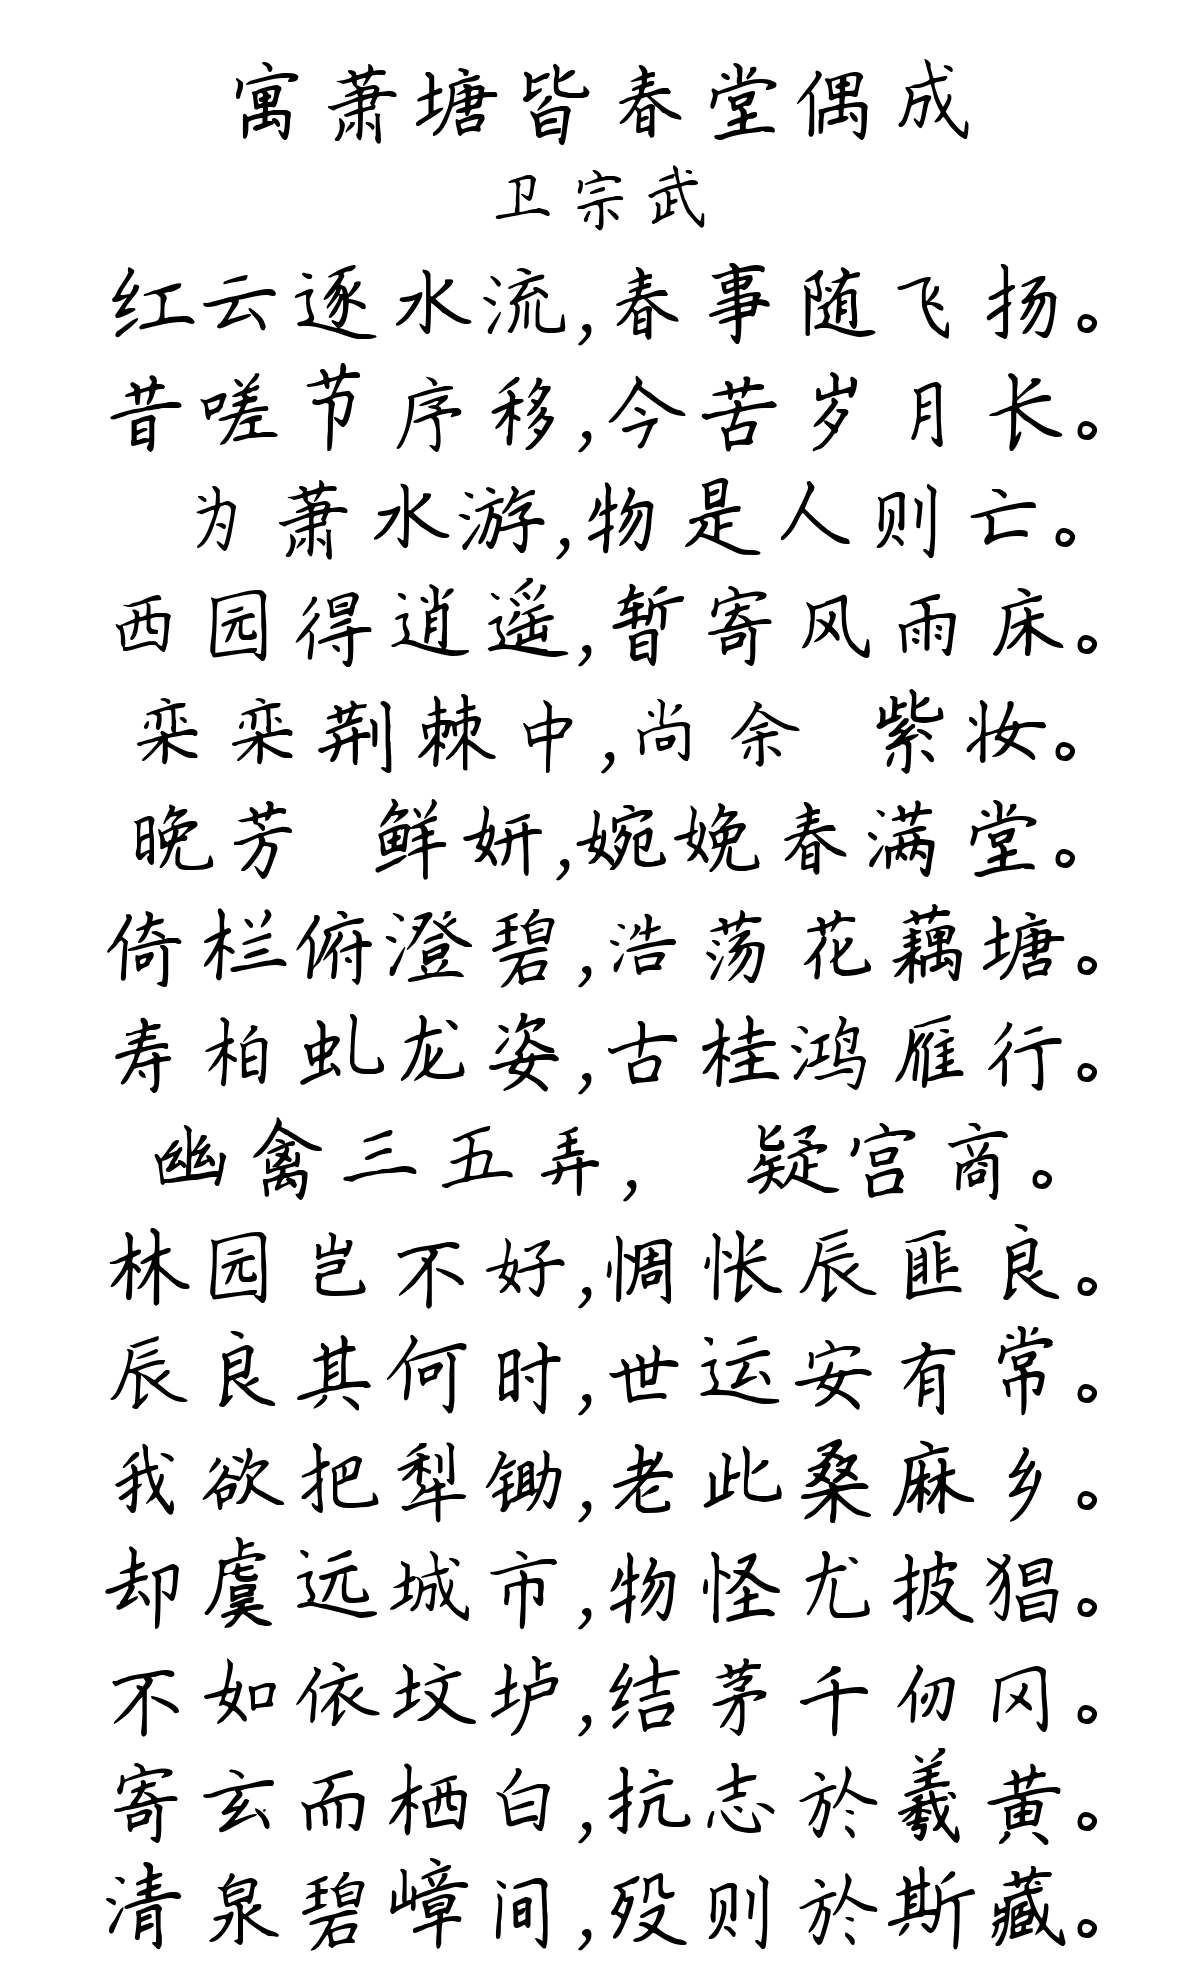 寓萧塘皆春堂偶成
卫宗武
红云逐水流,春事随飞扬。
昔嗟节序移,今苦岁月长。
为萧水游,物是人则亡。
西园得逍遥,暂寄风雨床。
栾栾荆棘中,尚余 紫妆。
晚芳 鲜妍,婉娩春满堂。
倚栏俯澄碧,浩荡花藕塘。
寿柏虬龙姿,古桂鸿雁行。
幽禽三五弄, 疑宫商。
林园岂不好,惆怅辰匪良。
辰良其何时,世运安有常。
我欲把犁锄,老此桑麻乡。
却虞远城市,物怪尤披猖。
不如依坟垆,结茅千仞冈。
寄玄而栖白,抗志於羲黄。
清泉碧嶂间,殁则於斯藏。